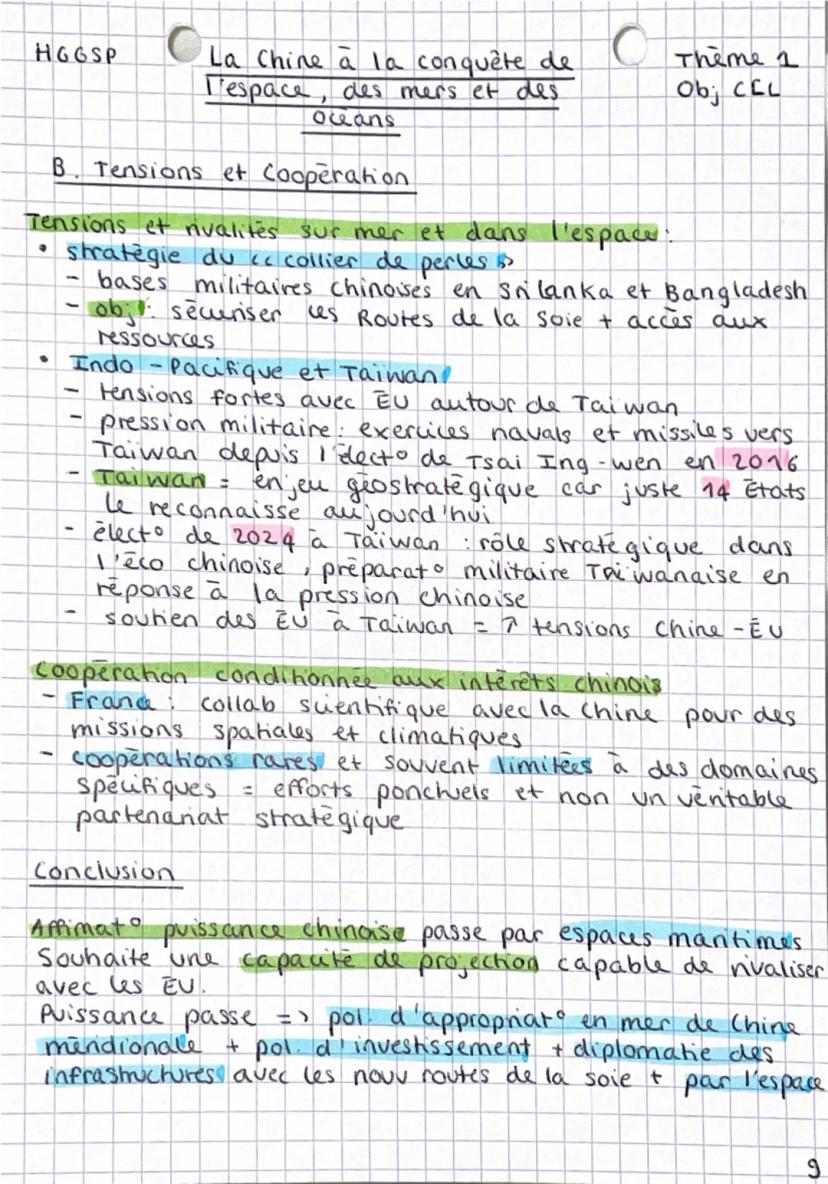 HGGSP
La Chine à la conquête de
l'espace, des mers et des
océans
Thème 1
Obj CCL
B. Tensions et Coopération
Tensions et rivalités sur mer et dans l'espace :
• stratégie du « collier de perles »
- bases militaires chinoises en Sri lanka et Bangladesh
- obj : sécuriser les Routes de la Soie + accès aux
ressources
• Indo-Pacifique et Taiwan
- tensions fortes avec ÉU autour de Taiwan
- pression militaire : exercices navals et missiles vers
Taiwan depuis l'élect° de Tsai Ing-wen en 2016
- Taiwan = enjeu géostratégique car juste 14 États
le reconnaisse aujourd'hui
- élect° de 2024 à Taiwan : rôle stratégique dans
l'éco chinoise, préparat° militaire Taiwanaise en
réponse à la pression chinoise
- soutien des ÉU à Taiwan = ↗ tensions Chine - ÉU
Coopération conditionnée aux intérêts chinois
- France : collab scientifique avec la Chine pour des
missions spatiales et climatiques
- coopérations rares et souvent limitées à des domaines
spécifiques = efforts ponctuels et non un véritable
partenariat stratégique
Conclusion
Affimat° puissance chinoise passe par espaces maritimes
Souhaite une capacité de projection capable de rivaliser
avec les ÉU.
Puissance passe => pol. d'appropriat° en mer de Chine
méridionale + pol. d'investissement + diplomatie des
infrastructures avec les nouv routes de la soie + par l'espace
9